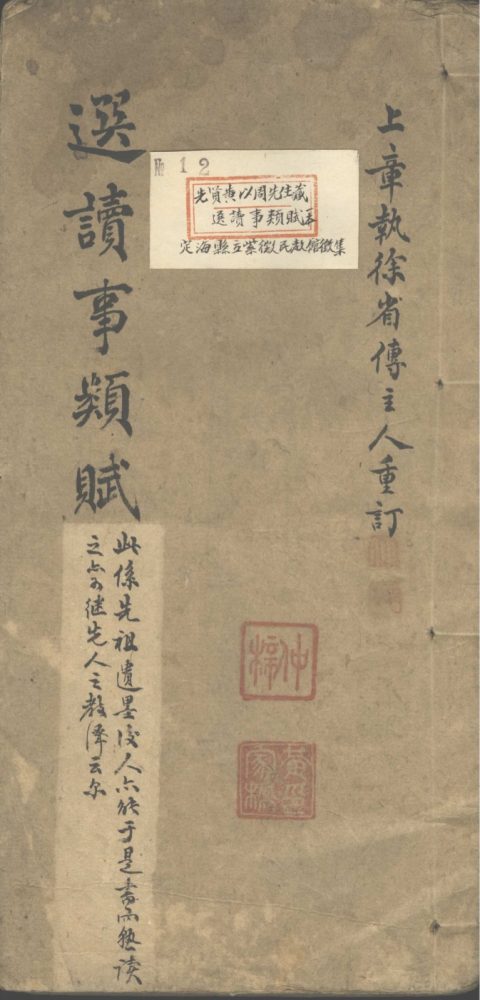 上章執徐省傳主人重訂
№ 12
先賢黃以周先生藏
選讀事類賦一本
定海縣立紫微民教館徵集
選讀事類賦
此係先祖遺墨後人六能于是書而熟讀
之亦可继先人之教澤云尔